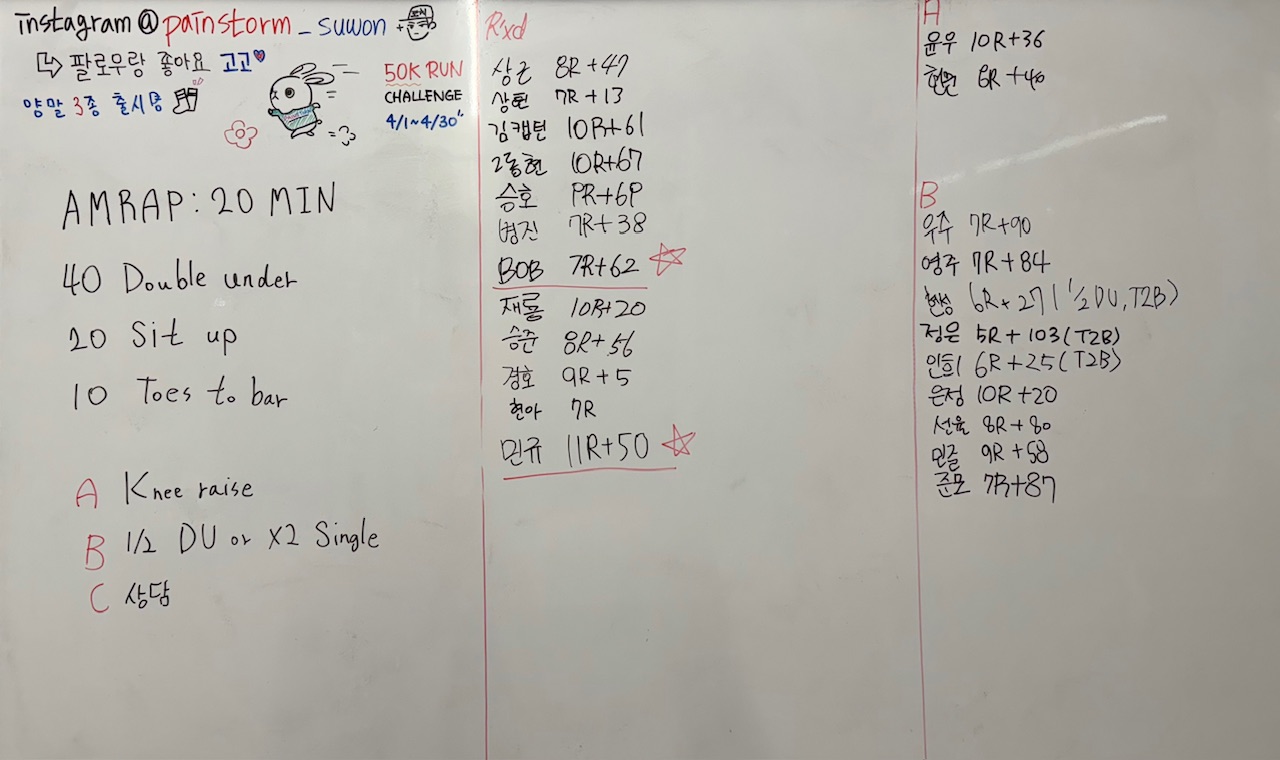 instagram@painstorm_suwon
팔로우랑 좋아요 고고
양말 3종 출시중
50K RUN
CHALLENGE
4/1~4/30"
AMRAP: 20 MIN
40 Double under
20 Sit up
10 Toes to bar
A Knee raise
B 1/2 DU or X2 Single
C 상담
R'xd
상근 8R+47
상현 7R+13
김캡틴 10R+61
2동현 10R+67
승호 9R+69
병진 7R+38
BOB 7R+62
재룡 10R+20
승준 8R+56
경호 9R+5
현아 7R
민규 11R+50
A
윤우 10R+36
6R+40
B
우주 7R+90
영주 7R+84
현성 6R+27 (1/2 DU, T2B)
정은 5R+103(T2B)
인희 6R+25(T2B)
은정 10R+20
선율 8R+80
민글 9R+58
준모 7R+87